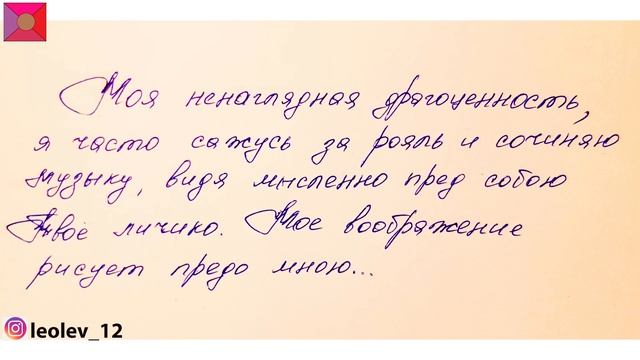 Моя ненаглядная драгоценность,
я часто сажусь за рояль и сочиняю
музыку, видя мысленно пред собою
Твоё личико. Мое воображение
рисует предо мною...
leolev_12